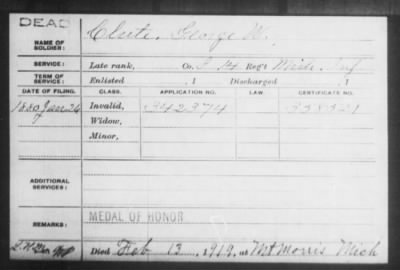 DEAD
NAME OF SOLDIER: Clute, George W.
SERVICE: Late rank, Co. I 14 Reg't Mich. Inf.
TERM OF SERVICE: Enlisted , 1 Discharged , 1
DATE OF FILING. CLASS. APPLICATION NO. CERTIFICATE NO.
1880 Jan 26 Invalid, 342374 338321
Widow,
Minor,
ADDITIONAL SERVICES:
REMARKS: MEDAL OF HONOR
Died Feb 13, 1919, at Mt Morris Mich